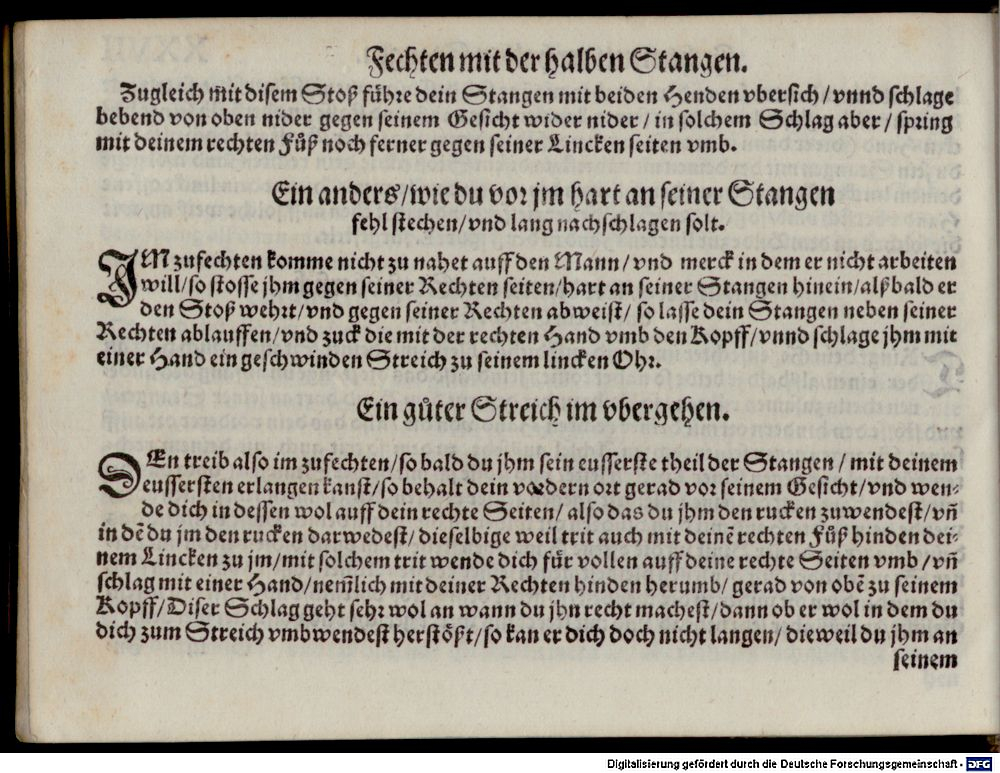 Fechten mit der halben Stangen.
Zugleich mit disem Stoß führe dein Stangen mit beiden Henden vbersich / vnnd schlage
behend von oben nider gegen seinem Gesicht wider nider / in solchem Schlag aber / spring
mit deinem rechten Fůß noch ferner gegen seiner Lincken seiten vmb.
Ein anders / wie du vor jm hart an seiner Stangen
fehl stechen / vnd lang nachschlagen solt.
IM zufechten komme nicht zu nahet auff den Mann / vnd merck in dem er nicht arbeiten
will / so stosse jhm gegen seiner Rechten seiten / hart an seiner Stangen hinein / alßbald er
den Stoß wehrt / vnd gegen seiner Rechten abweist / so lasse dein Stangen neben seiner
Rechten ablauffen / vnd zuck die mit der rechten Hand vmb den Kopff / vnnd schlage jhm mit
einer Hand ein geschwinden Streich zu seinem lincken Ohr.
Ein gůter Streich im vbergehen.
DEn treib also im zufechten / so bald du jhm sein eusserste theil der Stangen / mit deinem
eussersten erlangen kanst / so behalt dein vordern ort gerad vor seinem Gesicht / vnd wen⸗
de dich in dessen wol auff dein rechte Seiten / also das du jhm den rucken zuwendest / vñ
in dẽ du jm den rucken darwedest / dieselbige weil trit auch mit deinẽ rechten Fůß hinden dei⸗
nem Lincken zu jm / mit solchem trit wende dich für vollen auff deine rechte Seiten vmb / vñ
schlag mit einer Hand / nem̃lich mit deiner Rechten hinden herumb / gerad von obẽ zu seinem
Kopff / Diser Schlag geht sehr wol an wann du jhn recht machest / dann ob er wol in dem du
dich zum Streich vmbwendest herstößt / so kan er dich doch nicht langen / dieweil du jhm an
seinem
Digitalisierung gefördert durch die Deutsche Forschungsgemeinschaft - DFG